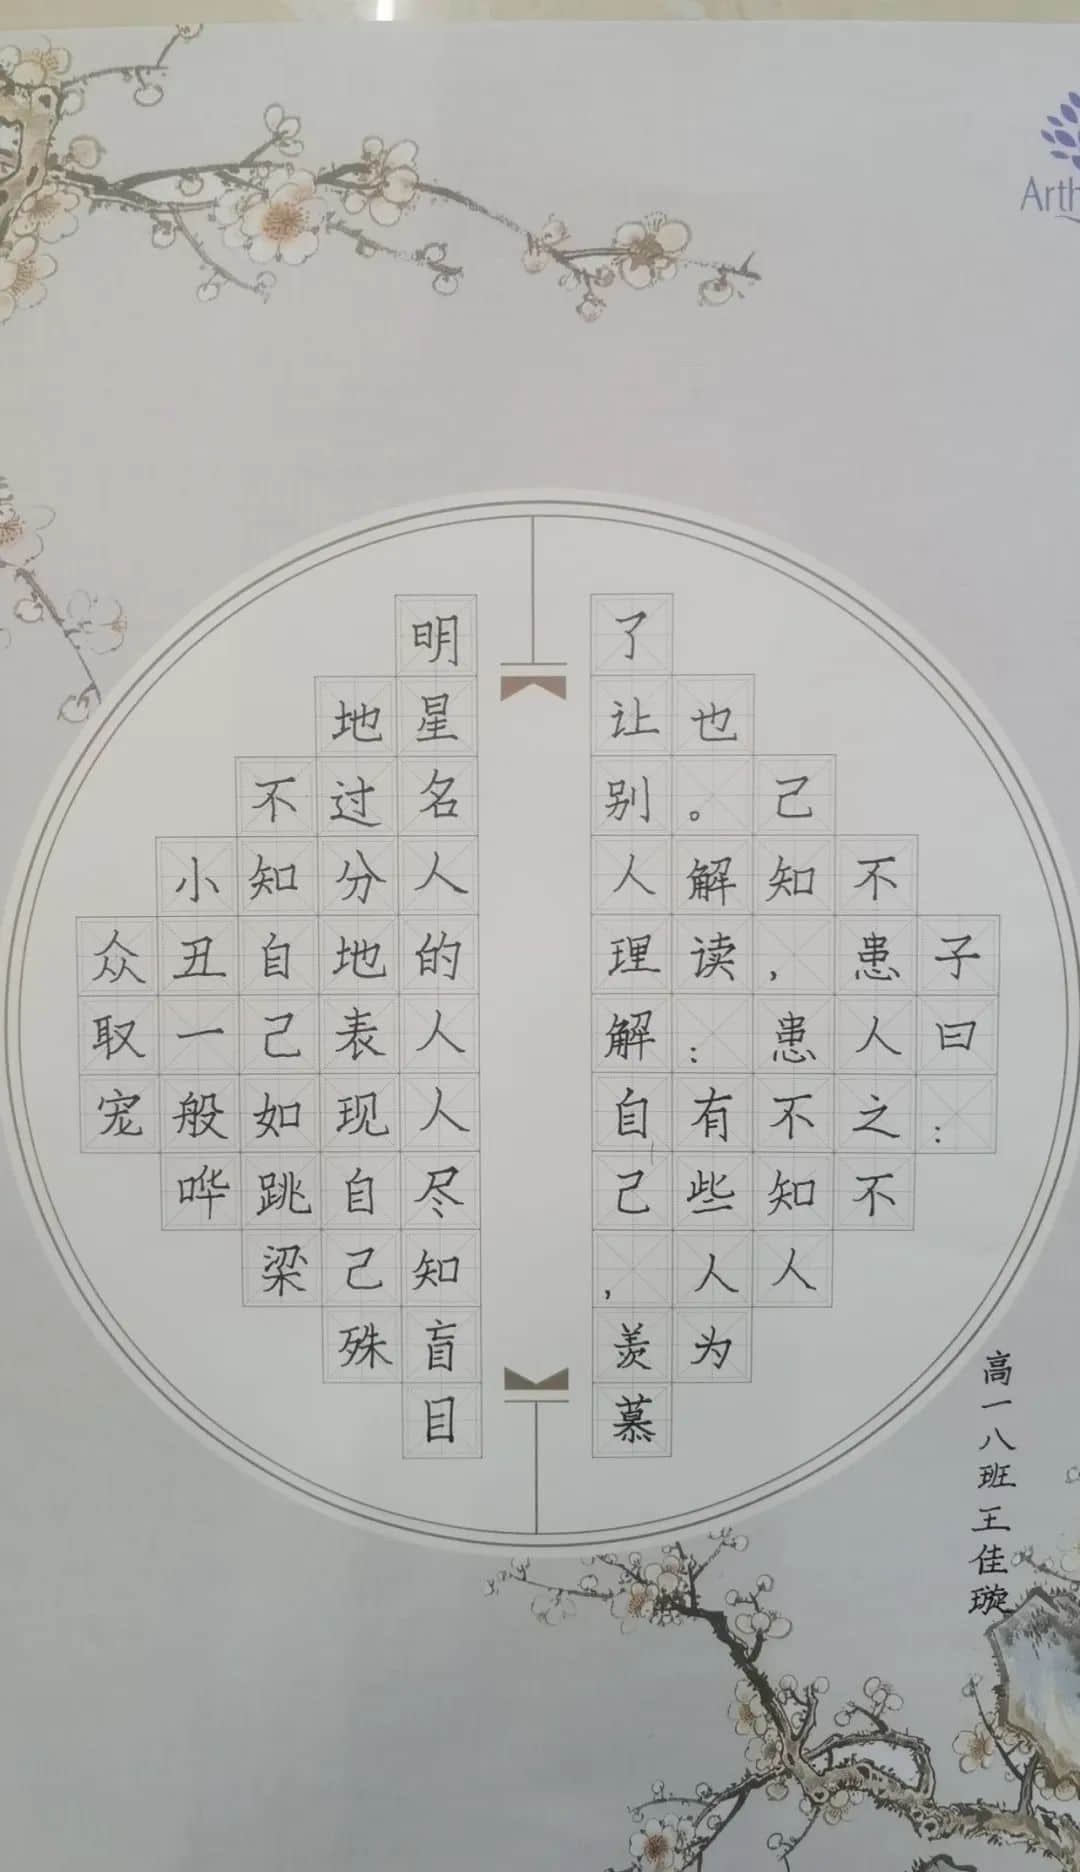 子曰：
不患人之不
己知，患不知人
也。解读：有些人为
了让别人理解自己，羡慕
明星名人的人人尽知盲目
地过分地表现自己殊
不知自己如跳梁
小丑一般哗
众取宠
高一八班王佳璇
Arth